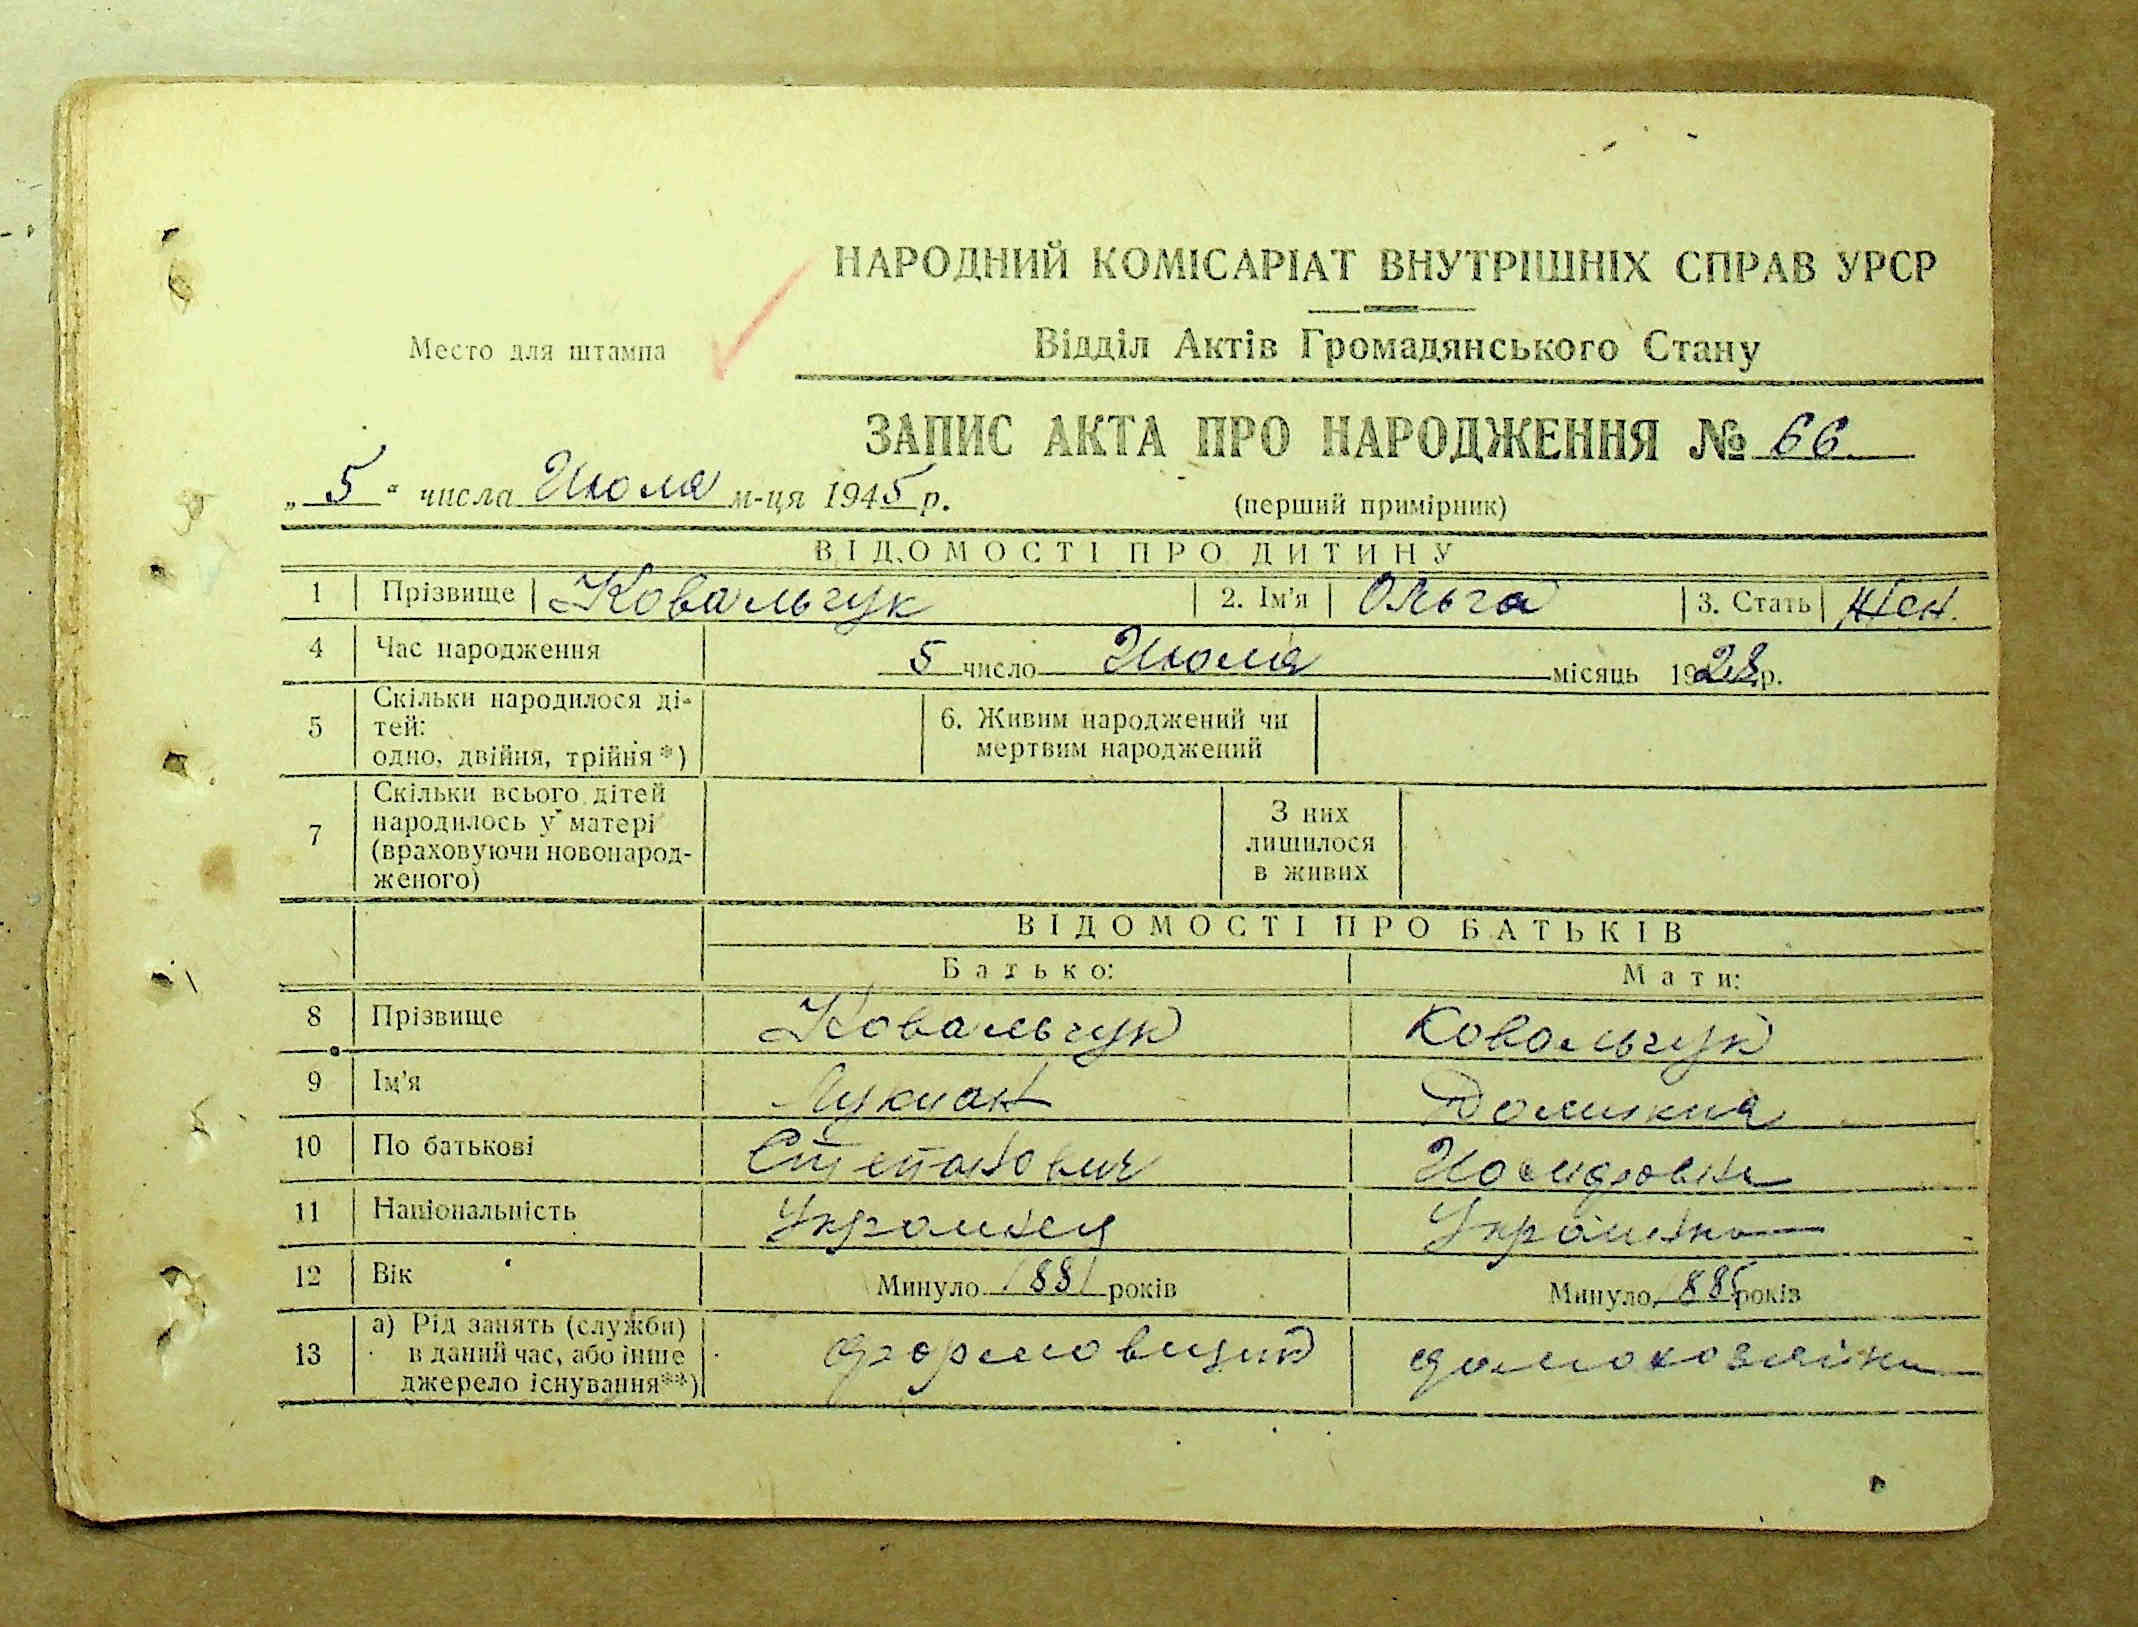 НАРОДНИЙ КОМІСАРІАТ ВНУТРІШНІХ СПРАВ УРСР
Место для штампа
Відділ Актів Громадянського Стану
ЗАПИС АКТА ПРО НАРОДЖЕННЯ № 66
„5“ числа Июля м-ця 1945 р.
(перший примірник)
ВІДОМОСТІ ПРО ДИТИНУ
1 Прізвище Ковальчук 2. Ім'я Ольга 3. Стать Жен.
4 Час народження 5 число Июля місяць 1928 р.
5 Скільки народилося ді-
тей:
одно, двійня, трійня *)
6. Живим народжений чи
мертвим народжений
7 Скільки всього дітей
народилось у матері
(враховуючи новонарод-
женого)
З них
лишилося
в живих
ВІДОМОСТІ ПРО БАТЬКІВ
Батько: Мати:
8 Прізвище Ковальчук Ковальчук
9 Ім'я Лукиан Домикия
10 По батькові Степанович
11 Національність Украинец Украинка
12 Вік Минуло 1881 років Минуло 1885 років
13 а) Рід занять (служби)
в даний час, або інше
джерело існування**)
формовщик домохозяйка